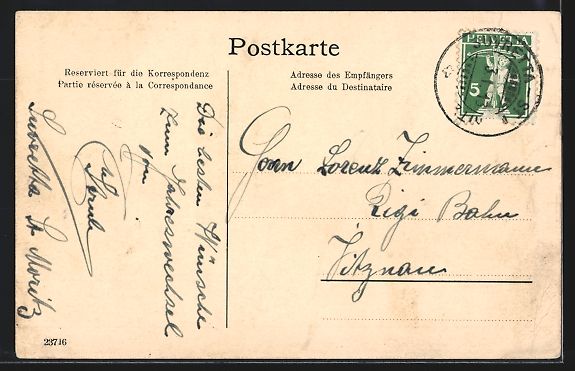 Postkarte
Reserviert für die Korrespondenz
Partie réservée à la Correspondance
Adresse des Empfängers
Adresse du Destinataire
HELVETIA
5
Die besten Wünsche
zum Jahreswechsel
von
Suvretta St. Moritz
Herrn Lorenz Zimmermann
Rigi Bahn
Vitznau
23716